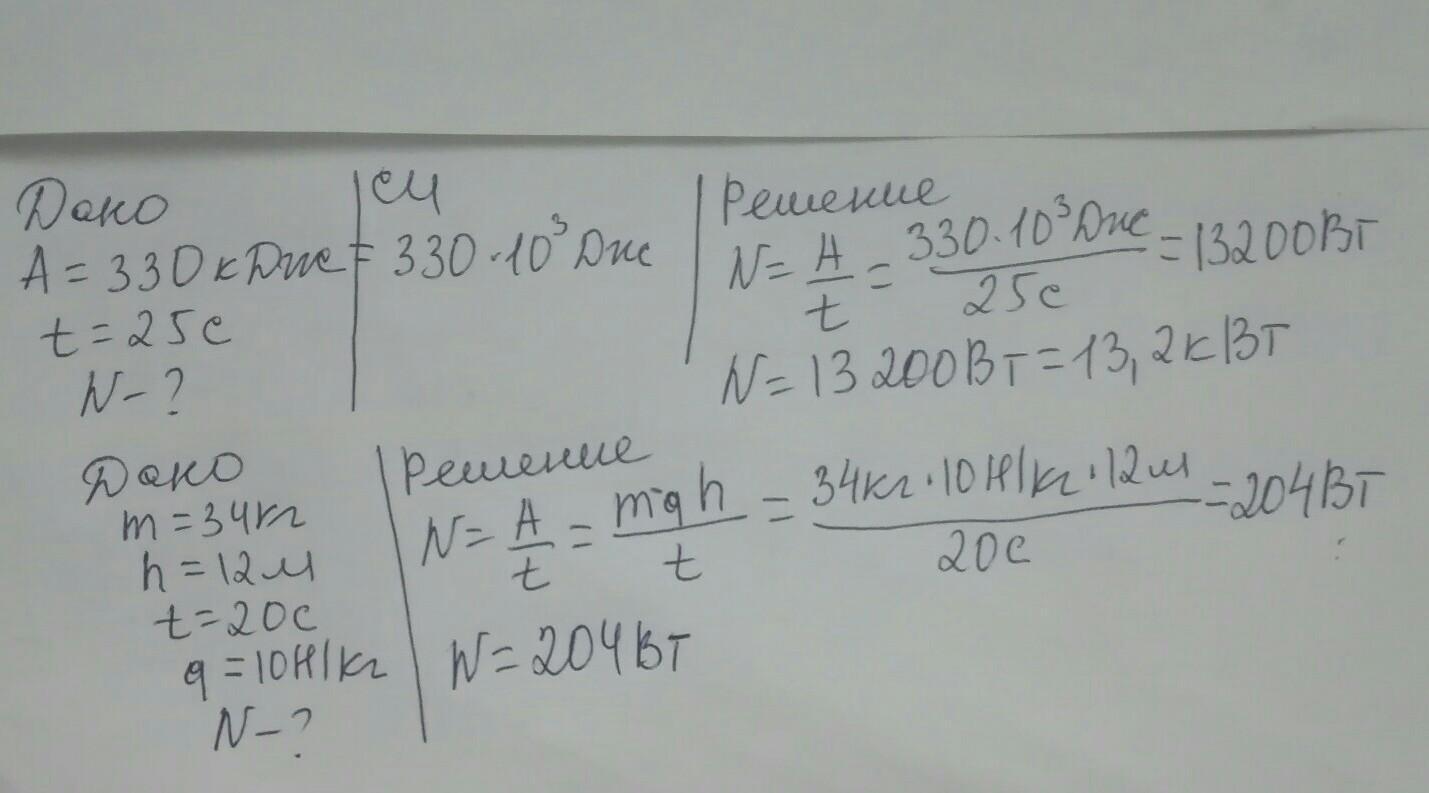 Дано
А = 330 кДж = 330·10³ Дж
t = 25 с
N – ?
СИ
Решение
N = A/t = 330·10³ Дж / 25 с = 13200 Вт
N = 13 200 Вт = 13,2 кВт
Дано
m = 34 кг
h = 12 м
t = 20 с
g = 10 Н/кг
N – ?
Решение
N = A/t = mgh/t = 34 кг·10 Н/кг·12 м / 20 с = 204 Вт
N = 204 Вт